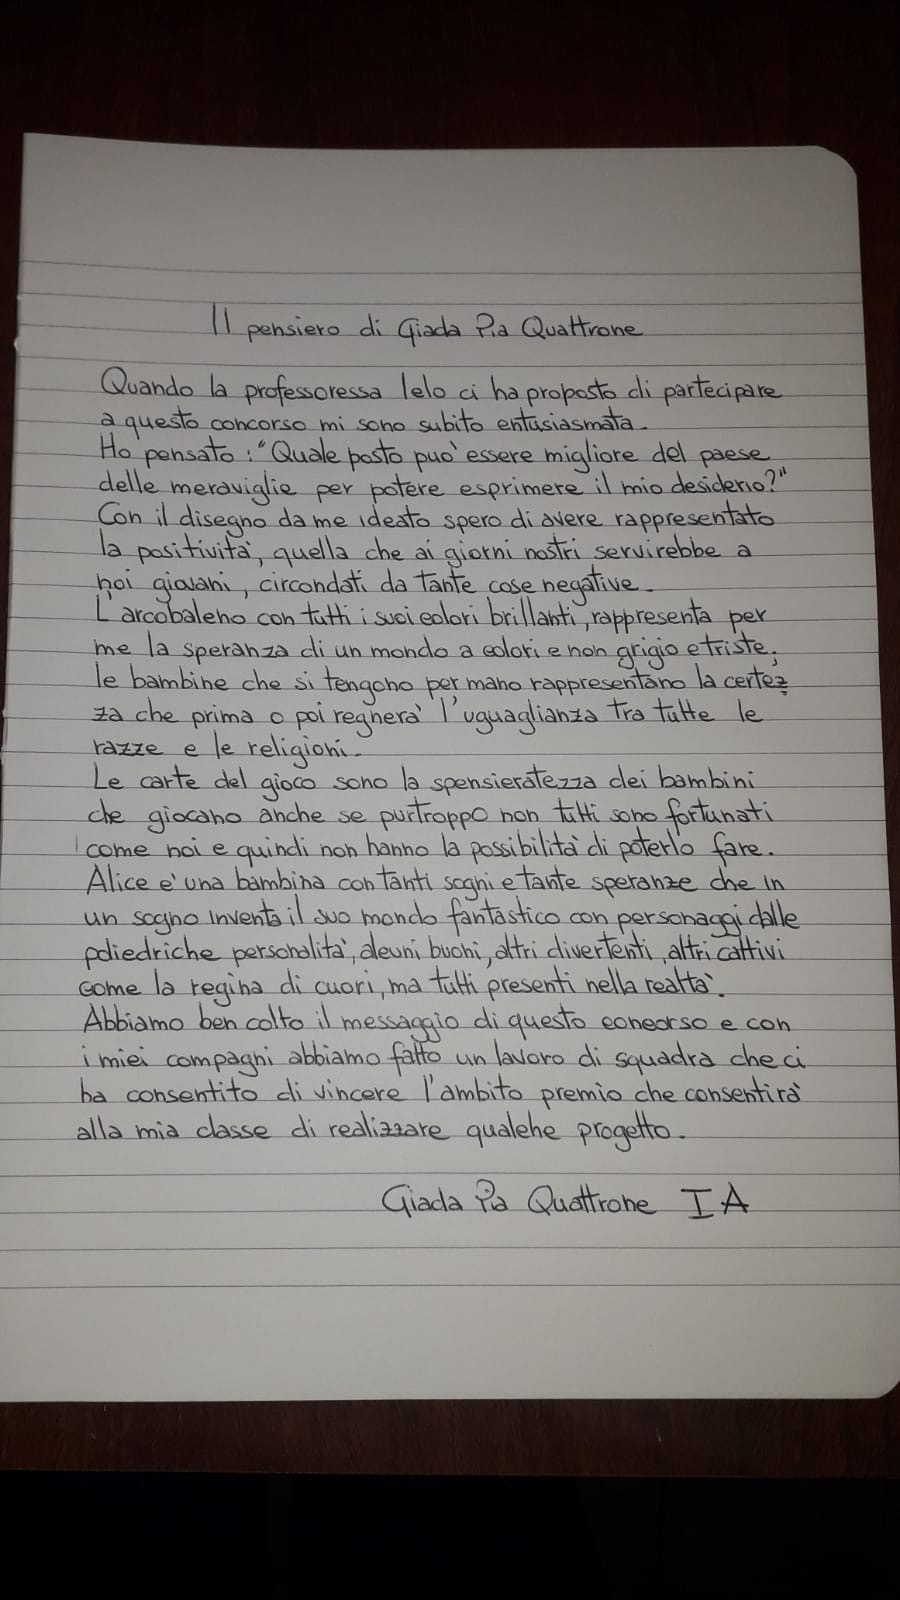 Il pensiero di Giada Pia Quattrone
Quando la professoressa Ielo ci ha proposto di partecipare
a questo concorso mi sono subito entusiasmata.
Ho pensato: "Quale posto puo' essere migliore del paese
delle meraviglie per potere esprimere il mio desiderio?"
Con il disegno da me ideato spero di avere rappresentato
la positività, quella che ai giorni nostri servirebbe a
noi giovani, circondati da tante cose negative.
L'arcobaleno con tutti i suoi colori brillanti, rappresenta per
me la speranza di un mondo a colori e non grigio e triste;
le bambine che si tengono per mano rappresentano la certez
za che prima o poi regnerà l'uguaglianza tra tutte le
razze e le religioni.
Le carte del gioco sono la spensieratezza dei bambini
che giocano anche se purtroppo non tutti sono fortunati
come noi e quindi non hanno la possibilità di poterlo fare.
Alice e' una bambina con tanti sogni e tante speranze che in
un sogno inventa il suo mondo fantastico con personaggi dalle
poliedriche personalità, alcuni buoni, altri divertenti, altri cattivi
come la regina di cuori, ma tutti presenti nella realtà.
Abbiamo ben colto il messaggio di questo concorso e con
i miei compagni abbiamo fatto un lavoro di squadra che ci
ha consentito di vincere l'ambito premio che consentirà
alla mia classe di realizzare qualche progetto.
Giada Pia Quattrone I A